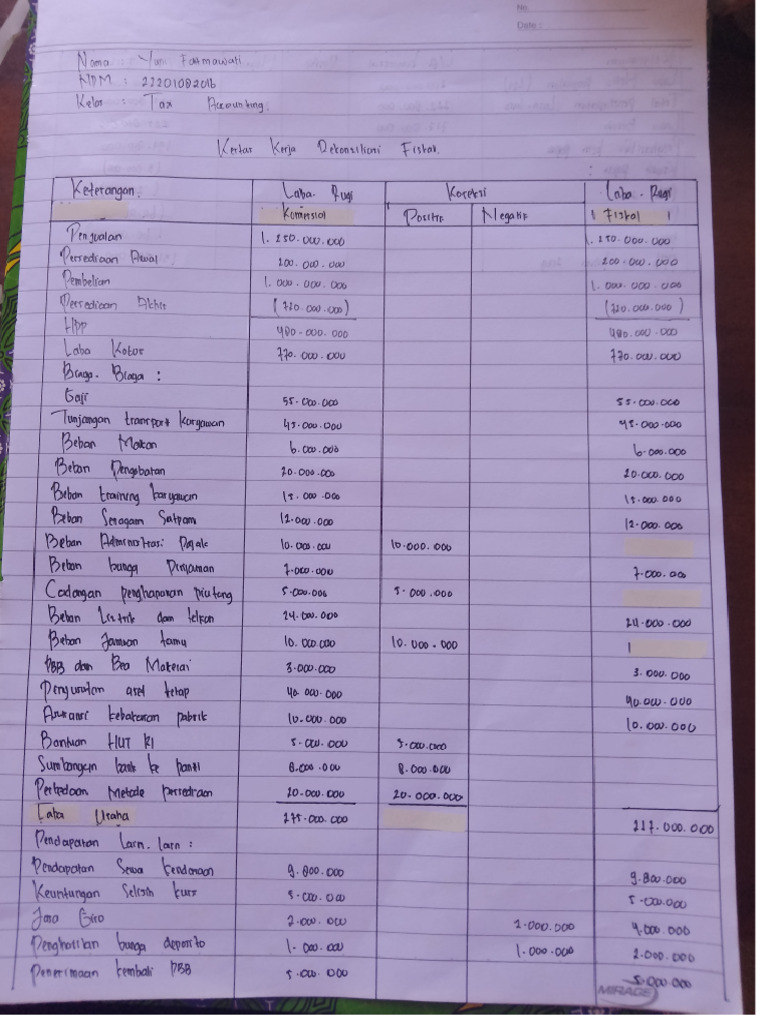 No.
Date :
Nama : Yuni Fatmawati
NPM : 22201082016
Kelas : Tax Accounting.
Kertas Kerja Rekonsiliasi Fiskal.
Keterangan. Laba. Rugi Koreksi Laba. Rugi
Komersial Positif Negatif Fiskal
Penjualan 1. 250.000.000 1. 250.000.000
Persediaan Awal 200. 000. 000 200.000.000
Pembelian 1. 000. 000. 000 1. 000. 000. 000
Persediaan Akhir (720.000.000) (720.000.000)
HPP 480.000.000 480.000.000
Laba Kotor 770.000.000 770.000.000
Biaya. Biaya :
Gaji 55.000.000 55.000.000
Tunjangan transport karyawan 45.000.000 45.000.000
Beban Makan 6.000.000 6.000.000
Beban Pengobatan 20.000.000 20.000.000
Beban training karyawan 15.000.000 15.000.000
Beban Seragam Satpam 12.000.000 12.000.000
Beban Administrasi Pajak 10.000.000 10.000.000
Beban bunga Pinjaman 7.000.000 7.000.000
Cadangan penghapusan piutang 5.000.000 5.000.000
Beban Listrik dan telkon 24.000.000 24.000.000
Beban Jamuan tamu 10.000.000 10.000.000
PBB dan Bea Materai 3.000.000 3.000.000
Penyusutan aset tetap 40.000.000 40.000.000
Asuransi kebakaran pabrik 10.000.000 10.000.000
Bantuan HUT RI 5.000.000 5.000.000
Sumbangan bank ke panti 8.000.000 8.000.000
Perbedaan Metode persediaan 20.000.000 20.000.000
Laba Usaha 275.000.000 217.000.000
Pendapatan Lain. lain :
Pendapatan Sewa kendaraan 9.800.000 9.800.000
Keuntungan Selisih kurs 5.000.000 5.000.000
Jasa Giro 2.000.000 2.000.000 4.000.000
Penghasilan bunga deposito 1.000.000 1.000.000 2.000.000
Penerimaan kembali PBB 5.000.000 5.000.000
MIRAGE